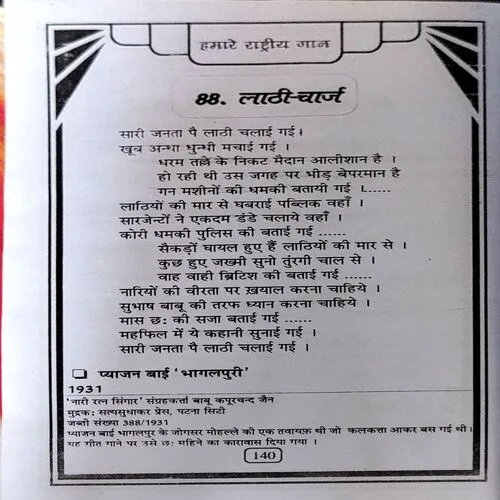 हमारे राष्ट्रीय गान
88. लाठी-चार्ज
सारी जनता पै लाठी चलाई गई।
खूब अन्धा धुन्धी मचाई गई ।
धरम तल्ले के निकट मैदान आलीशान है ।
हो रही थी उस जगह पर भीड़ बेपरमान है
गन मशीनों की धमकी बतायी गई ।.....
लाठियों की मार से घबराई पब्लिक वहाँ ।
सारजेन्टों ने एकदम डंडे चलाये वहाँ ।
कोरी धमकी पुलिस की बताई गई ......
सैकड़ों घायल हुए हैं लाठियों की मार से ।
कुछ हुए जख्मी सुनो तुंरगी चाल से ।
वाह वाही ब्रिटिश की बताई गई ......
नारियों की वीरता पर ख़याल करना चाहिये ।
सुभाष बाबू की तरफ ध्यान करना चाहिये ।
मास छ: की सजा बताई गई ......
महफिल में ये कहानी सुनाई गई ।
सारी जनता पै लाठी चलाई गई ।
❑ प्याजन बाई 'भागलपुरी'
1931
'नारी रत्न सिंगार' संग्रहकर्ता बाबू कपूरचन्द जैन
मुद्रक: सत्यसुधाकर प्रेस, पटना सिटी
जब्ती संख्या 388/1931
प्याजन बाई भागलपुर के जोगसर मोहल्ले की एक तवायफ़ थी जो कलकत्ता आकर बस गई थी।
यह गीत गाने पर उसे छ: महिने का कारावास दिया गया ।
140